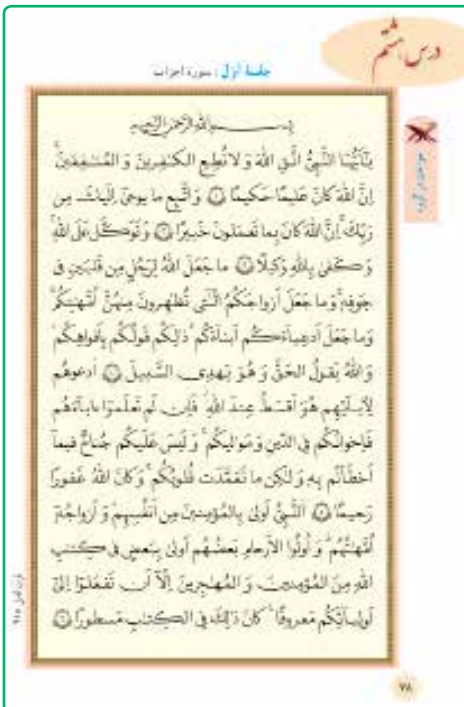 درس هشتم
جلسه اول : سوره احزاب
بسم الله الرحمن الرحيم
يٰٓأَيُّهَا النَّبِيُّ اتَّقِ اللهَ وَ لا تُطِعِ الكٰفِرينَ وَ المُنٰفِقينَ
اِنَّ اللهَ كانَ عَليمًا حَكيمًا ۱ وَ اتَّبِع ما يوحىٰ اِلَيكَ مِن
رَبِّكَ اِنَّ اللهَ كانَ بِما تَعمَلونَ خَبيرًا ۲ وَ تَوَكَّل عَلَى اللهِ
وَ كَفىٰ بِاللهِ وَكيلًا ۳ ما جَعَلَ اللهُ لِرَجُلٍ مِن قَلبَينِ فى
جَوفِهِ وَ ما جَعَلَ اَزواجَكُمُ الّٰـٔى تُظٰهِرونَ مِنهُنَّ اُمَّهٰتِكُم
وَ ما جَعَلَ اَدعِياءَكُم اَبناءَكُم ذٰلِكُم قَولُكُم بِاَفواهِكُم
وَ اللهُ يَقولُ الحَقَّ وَ هُوَ يَهدِى السَّبيلَ ۴ اُدعوهُم
لِاٰبائِهِم هُوَ اَقسَطُ عِندَ اللهِ فَاِن لَم تَعلَموا ءاباءَهُم
فَاِخوانُكُم فِى الدّينِ وَ مَواليكُم وَ لَيسَ عَلَيكُم جُناحٌ فيما
اَخطَأتُم بِهِ وَ لٰكِن ما تَعَمَّدَت قُلوبُكُم وَ كانَ اللهُ غَفورًا
رَحيمًا ۵ اَلنَّبِىُّ اَولىٰ بِالمُؤمِنينَ مِن اَنفُسِهِم وَ اَزواجُهُ
اُمَّهٰتُهُم وَ اُولُوا الاَرحامِ بَعضُهُم اَولىٰ بِبَعضٍ فى كِتٰبِ
اللهِ مِنَ المُؤمِنينَ وَ المُهٰجِرينَ اِلّا اَن تَفعَلوا اِلىٰ
اَولِيائِكُم مَعروفًا كانَ ذٰلِكَ فِى الكِتٰبِ مَسطورًا ۶
۷۸